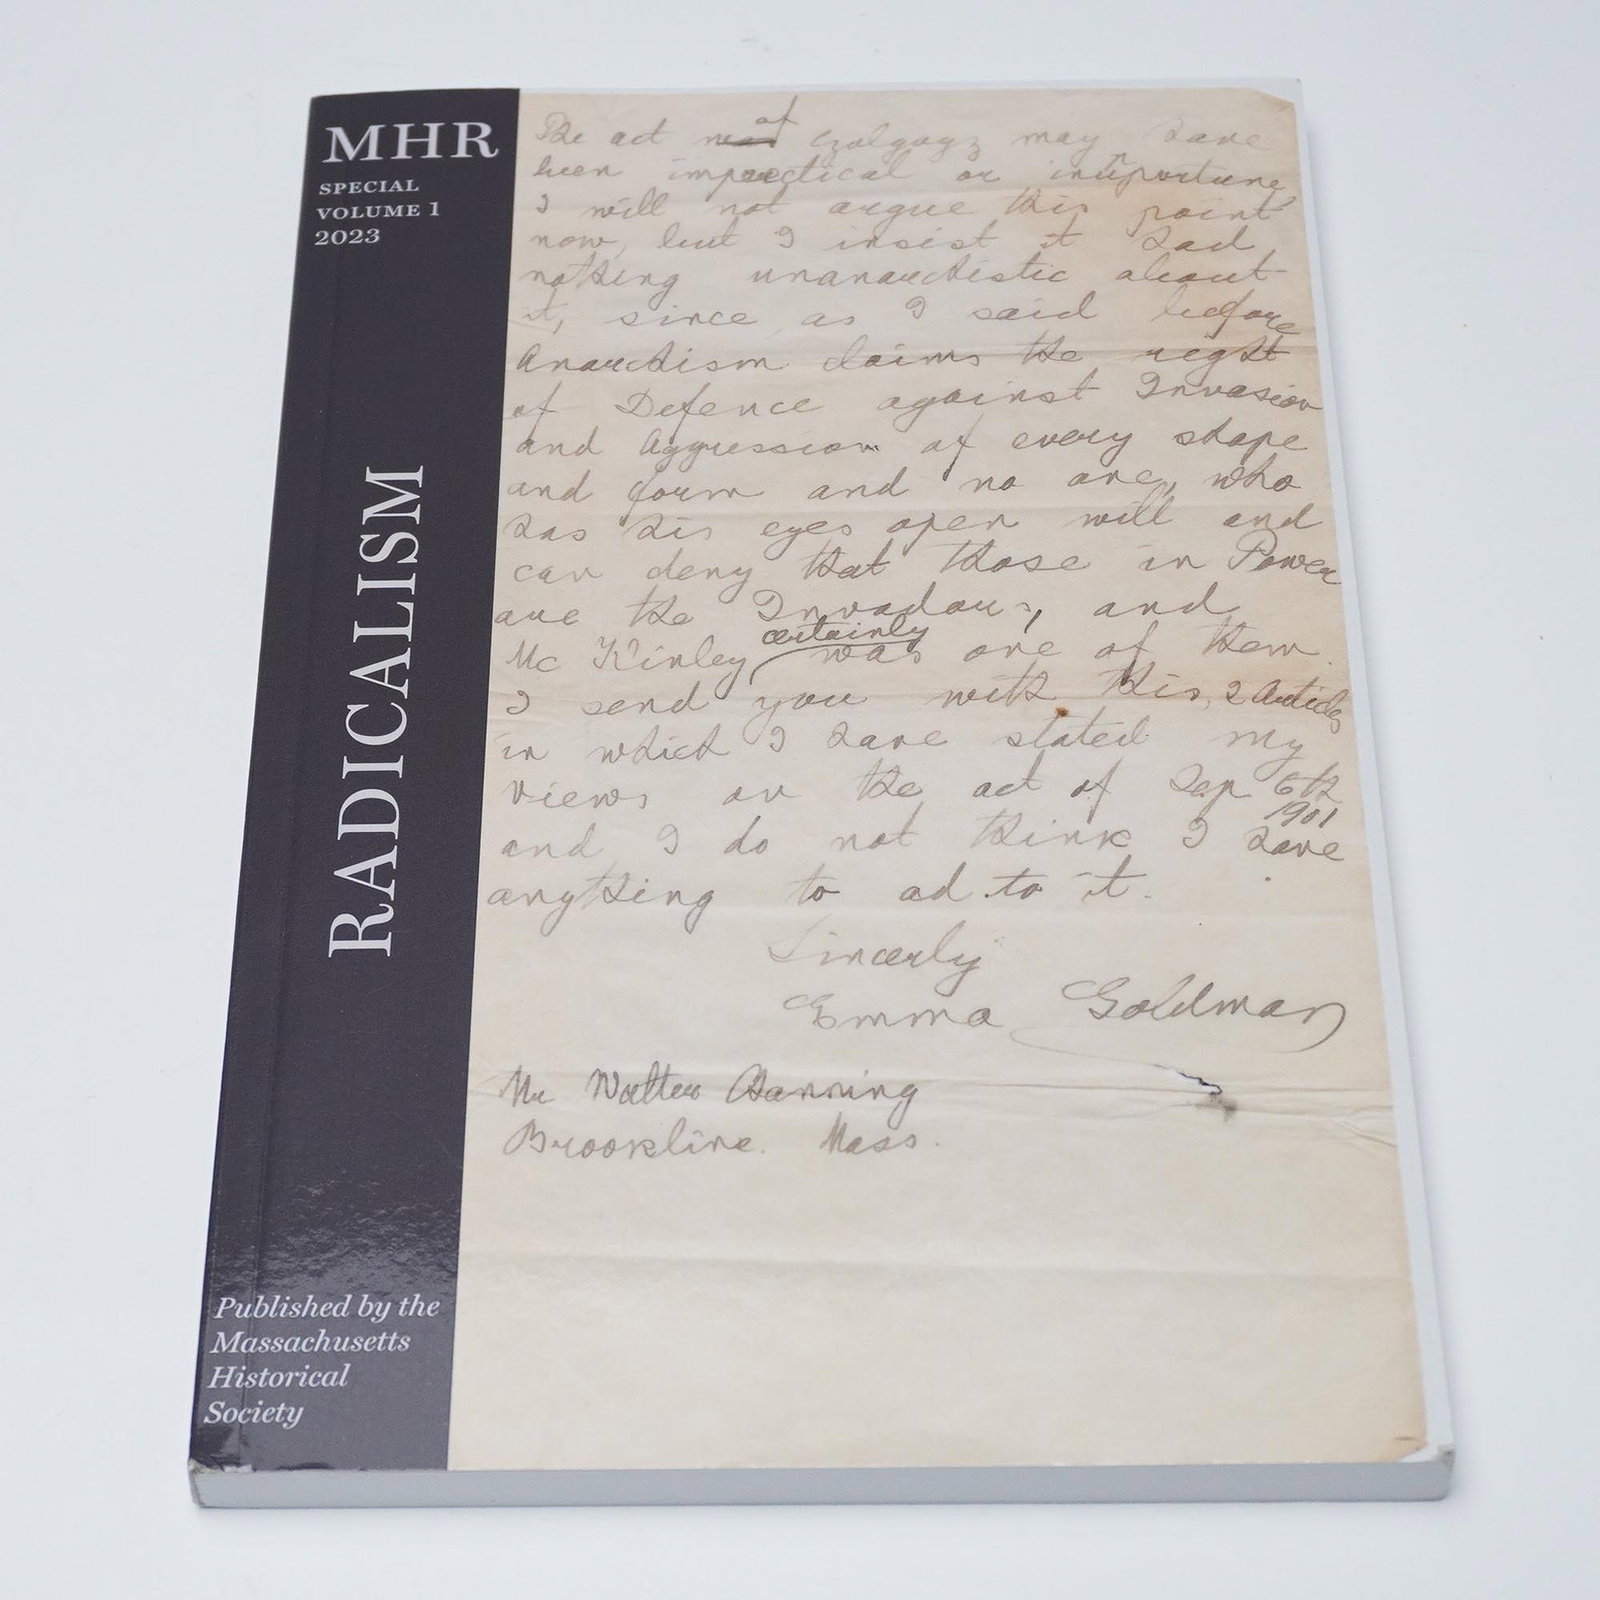 MHR
SPECIAL
VOLUME 1
2023
RADICALISM
Published by the
Massachusetts
Historical
Society
The act of Czolgogz may have
been impractical or inopportune
I will not argue this point
now, but I insist it had
nothing unanarchistic about
it, since as I said before
Anarchism claims the right
of Defence against Invasion
and Aggression of every shape
and form and no one, who
has his eyes open will and
can deny that those in Power
are the Invadours, and
certainly
Mc Kinley was one of them.
I send you with this, 2 Articles
in which I have stated my
views on the act of Sep 6th
1901
and I do not think I have
anything to ad to it.
Sincerly
Emma Goldman
Mr Walter Channing
Brookline. Mass.